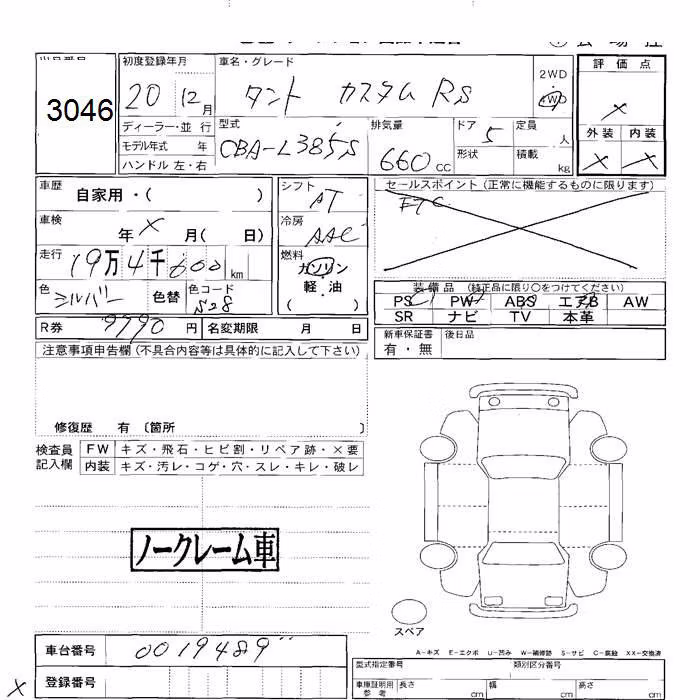 3046
初度登録年月
20 12月
車名・グレード
タント カスタム RS
2WD
4WD
評価点
×
外装 内装
× ×
ディーラー・並行
モデル年式 年
ハンドル 左・右
型式
CBA-L385S
排気量
660 CC
ドア
5
形状
定員
人
積載
kg
車歴
自家用・( )
車検
年 × 月( 日)
走行
19万4千600 km
色
シルバー
色替
色コード
S28
シフト
AT
冷房
AAC
燃料
ガソリン
軽・油
( )
セールスポイント(正常に機能するものに限ります)
ETC
装備品(純正品に限り○をつけてください)
PS PW ABS エアB AW
SR ナビ TV 本革
R券 9790 円
名変期限 月 日
新車保証書
有・無
後日品
注意事項申告欄(不具合内容等は具体的に記入して下さい)
修復歴 有 〔箇所 〕
検査員
記入欄
FW キズ・飛石・ヒビ割・リペア跡・×要
内装 キズ・汚レ・コゲ・穴・スレ・キレ・破レ
ノークレーム車
スペア
A-キズ E-エクボ U-凹み W-補修跡 S-サビ C-腐蝕 XX-交換済
車台番号 0019489
登録番号
×
型式指定番号
類別区分番号
車庫証明用
参考
長さ cm
幅 cm
高さ cm